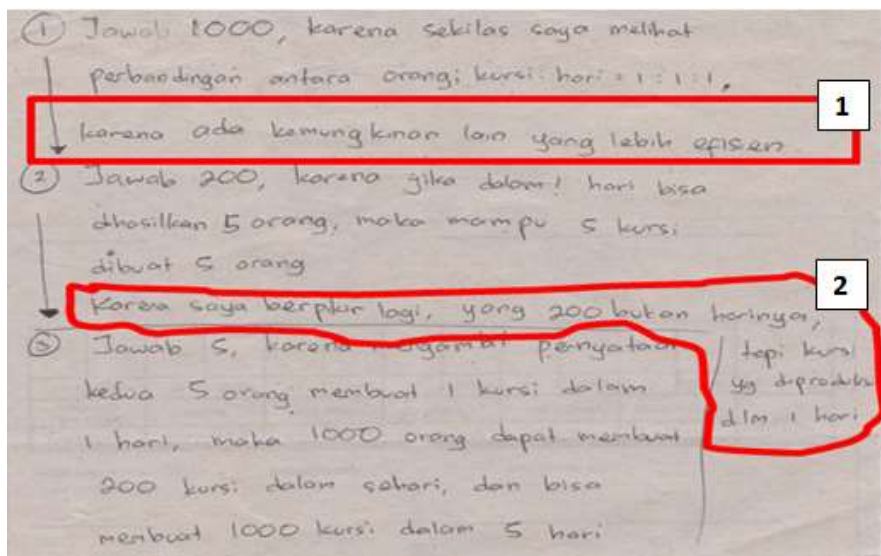 ① Jawab 1000, karena sekilas saya melihat
perbandingan antara orang: kursi: hari = 1 : 1 : 1,
1
karena ada kemungkinan lain yang lebih efisen
② Jawab 200, karena jika dalam 1 hari bisa
dhasilkan 5 orang, maka mampu 5 kursi
dibuat 5 orang
2
Karena saya berpikir lagi, yang 200 bukan harinya,
tapi kursi
yg diproduksi
dlm 1 hari
③ Jawab 5, karena pernyataan
kedua 5 orang membuat 1 kursi dalam
1 hari, maka 1000 orang dapat membuat
200 kursi dalam sehari, dan bisa
membuat 1000 kursi dalam 5 hari